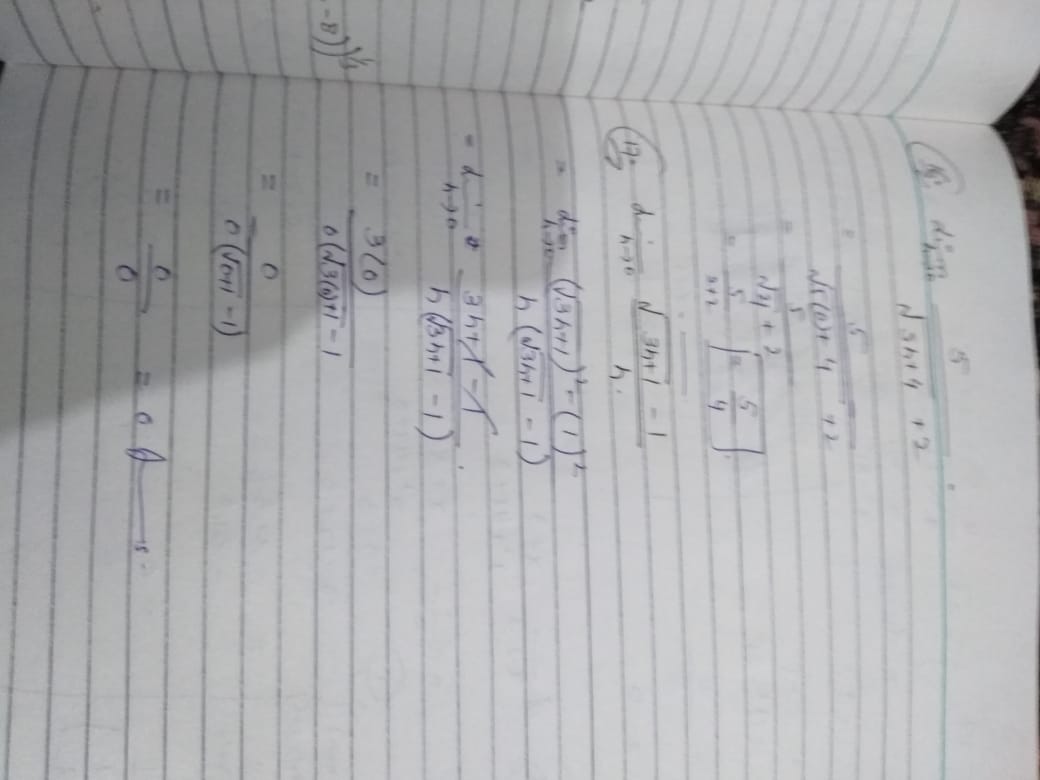 16. lim h→0 5 / √5h+4 + 2
= 5 / √5(0)+4 + 2
= 5 / √4 + 2
= 5 / 2+2 = 5/4
17. lim h→0 √3h+1 - 1 / h.
= lim h→0 (√3h+1)² - (1)² / h(√3h+1 - 1)
= lim h→0 3h+1 - 1 / h(√3h+1 - 1)
= 3(0) / 0(√3(0)+1 - 1
= 0 / 0(√0+1 - 1)
= 0/0 = 0
-8))